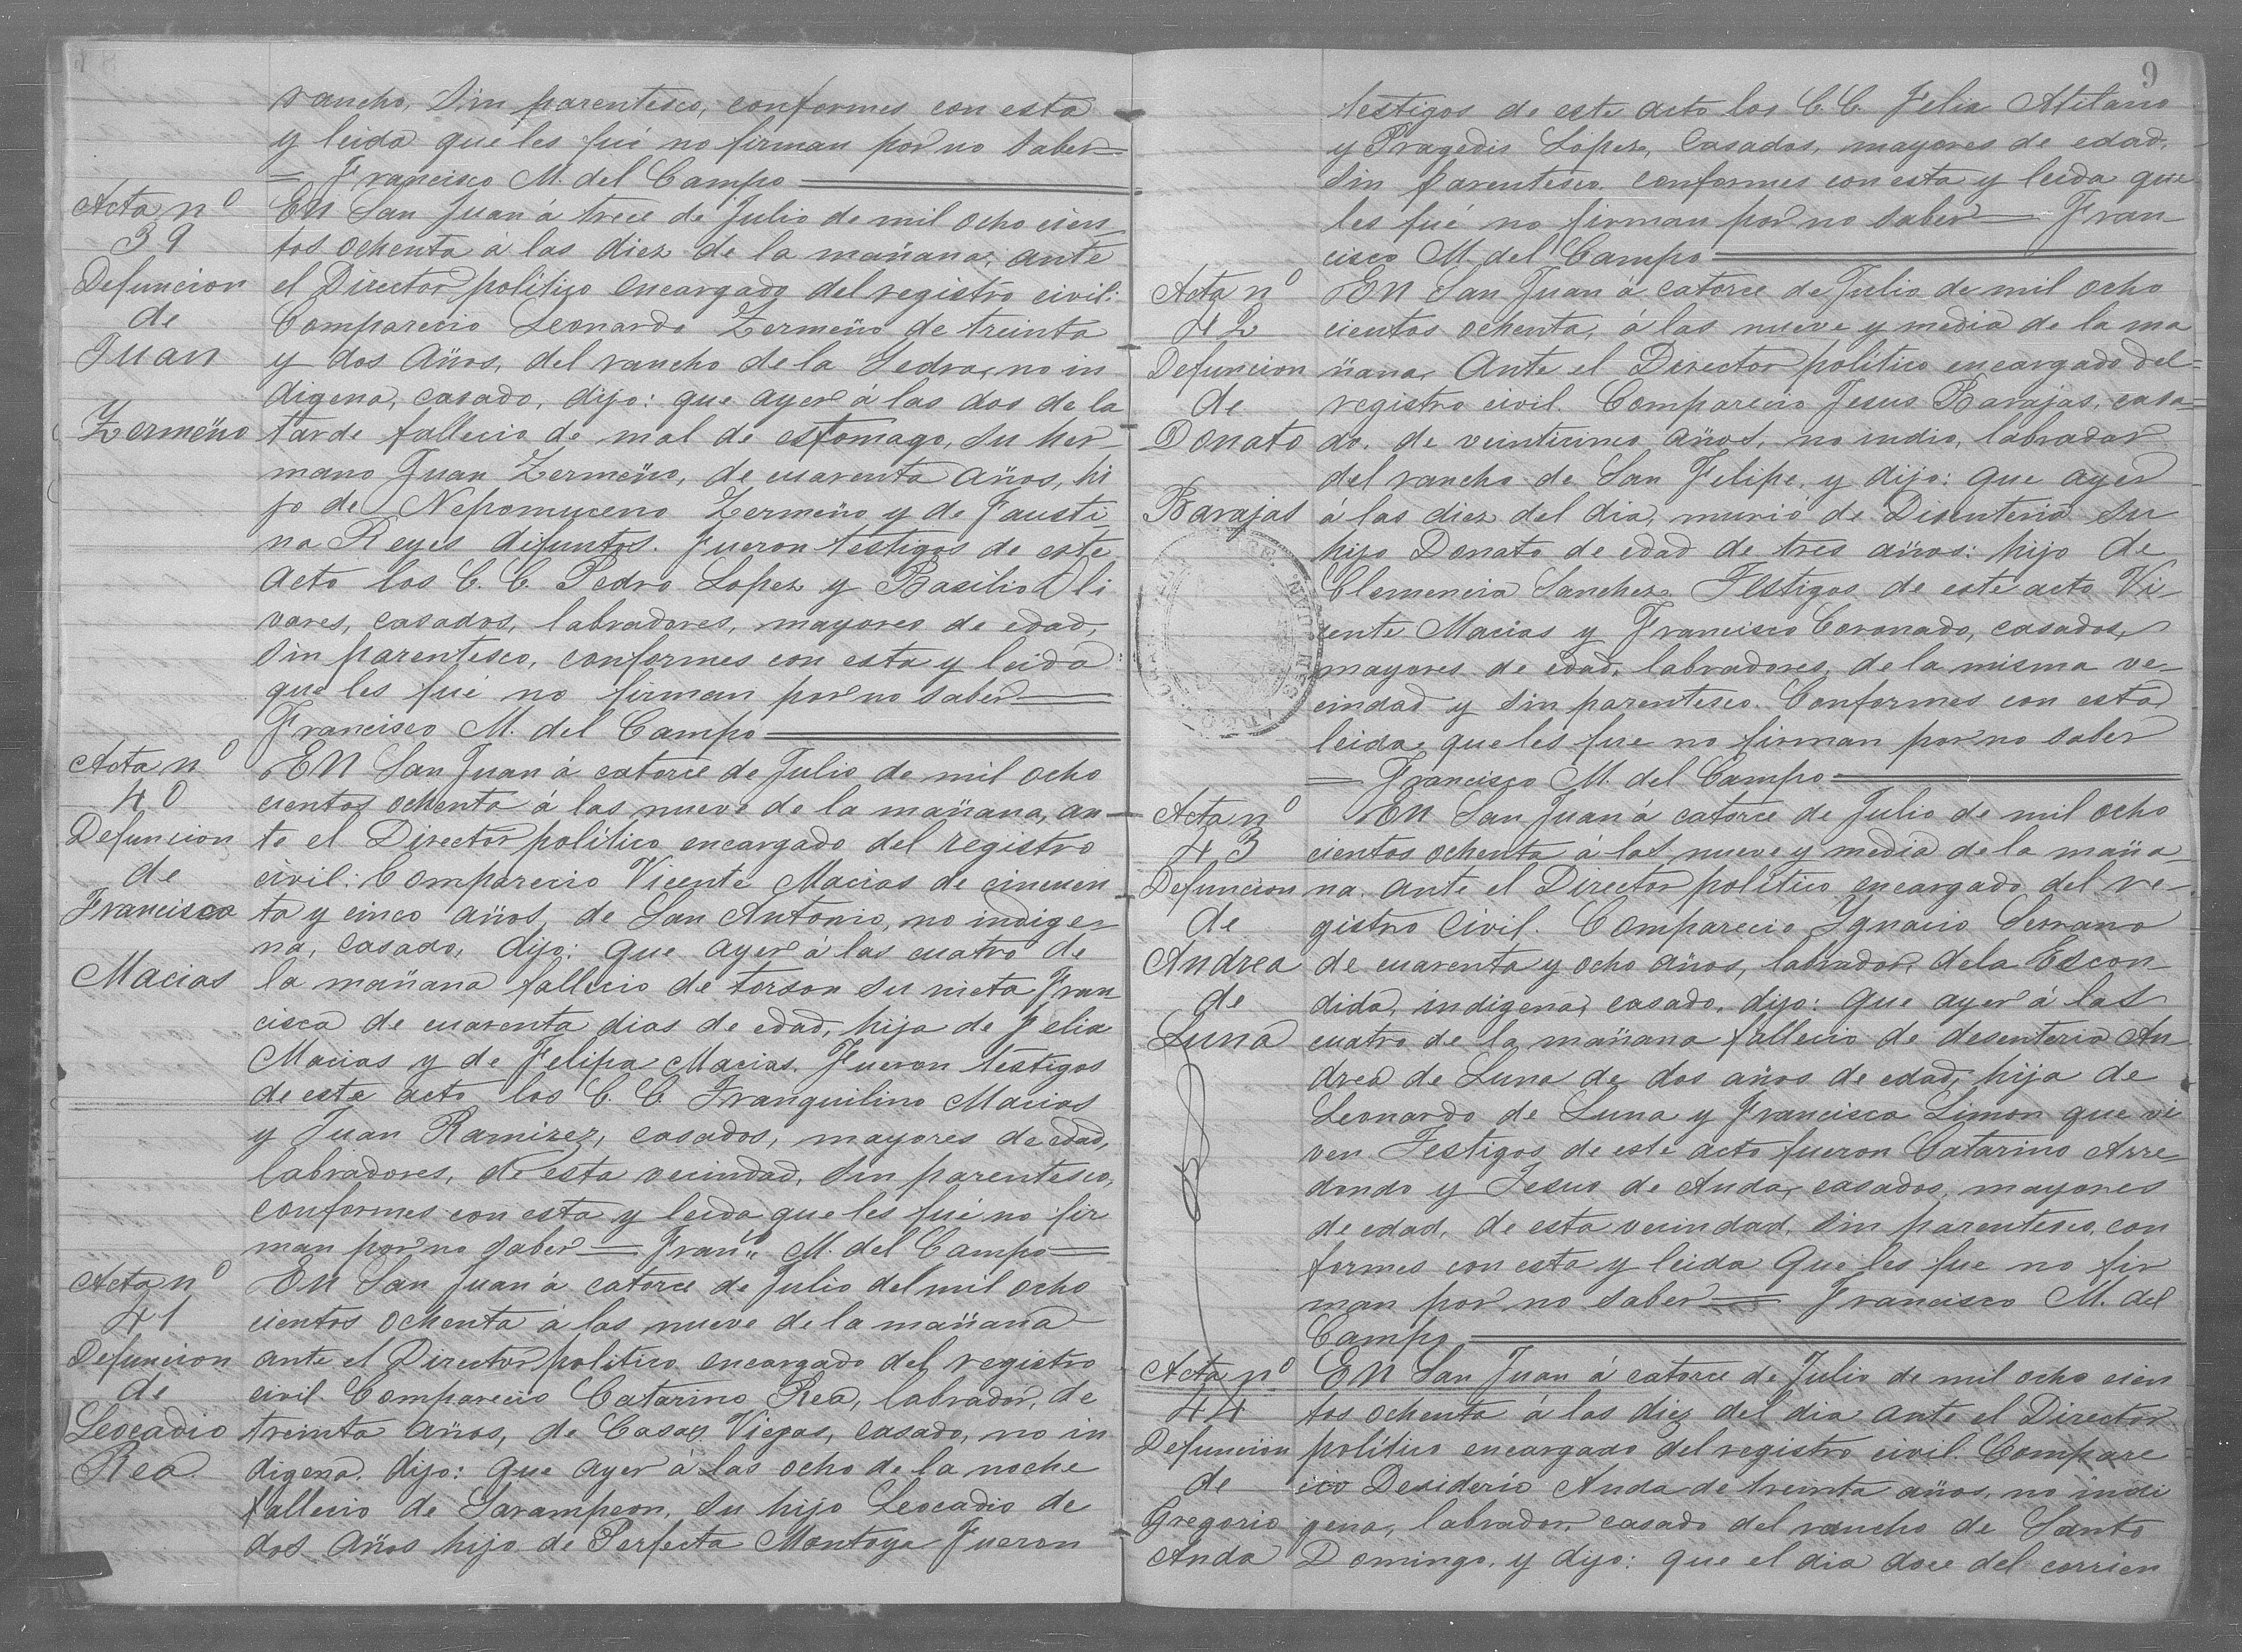 rancho, sin parentesco, conformes con esta
y leida que les fué no firman por no saber
= Francisco M. del Campo
Acta nº
39
Defuncion
de
Juan
Zermeño
En San Juan á trece de Julio de mil ocho cien
tos ochenta á las diez de la mañana, ante
el Director politico encargado del registro civil:
Comparecio Leonardo Zermeño de treinta
y dos años, del rancho de la Sedra, no in
digena, casado, dijo: que ayer á las dos de la
tarde fallecio de mal de estomago, su her
mano Juan Zermeño, de cuarenta años, hi
jo de Nepomuceno Zermeño y de Fausti
na Reyes difuntos. Fueron testigos de este
acto los C. C. Pedro Lopez y Basilio Oli
vares, casados, labradores, mayores de edad,
sin parentesco, conformes con esta y leida
que les fué no firman por no saber
Francisco M. del Campo
Acta nº
40
Defuncion
de
Francisca
Macias
En San Juan á catorce de Julio de mil ocho
cientos ochenta á las nueve de la mañana, an
te el Director político encargado del registro
civil: Comparecio Vicente Macias de cincuen
ta y cinco años, de San Antonio, no indige
na, casado, dijo: que ayer á las cuatro de
la mañana fallecio de torzon su nieta Fran
cisca de cuarenta dias de edad, hija de Felix
Macias y de Felipa Macias. Fueron testigos
de este acto los C. C. Tranquilino Macias
y Juan Ramirez, casados, mayores de edad,
labradores, de esta vecindad, sin parentesco,
conformes con esta y leida que les fué no fir
man por no saber = Franco. M. del Campo
Acta nº
41
Defuncion
de
Leocadio
Rea
En San Juan á catorce de Julio del mil ocho
cientos ochenta á las nueve de la mañana
ante el Director politico encargado del registro
civil. Comparecio Catarino Rea, labrador, de
treinta años, de Casas Viejas, casado, no in
digena. dijo: que ayer á las ocho de la noche
fallecio de Sarampeon, su hijo Leocadio de
dos años hijo de Perfecta Montoya Fueron
9
testigos de este acto los C. C. Felix Atilano
y Pragedis Lopez, Casados, mayores de edad,
sin parentesco. conformes con esta y leida que
les fué no firman por no saber = Fran
cisco M. del Campo
Acta nº
42
Defuncion
de
Donato
Barajas
En San Juan á catorce de Julio de mil ocho
cientos ochenta, á las nueve y media de la ma
ñana, Ante el Director politico encargado del
registro civil. Comparecio Jesus Barajas, casa
do, de veinticinco años, no indio, labrador
del rancho de San Felipe, y dijo: que ayer
á las diez del dia, murió de Disenteria su
hijo Donato de edad de tres años: hijo de
Clemencia Sanchez. Testigos de este acto Vi
cente Macias y Francisco Coronado, casados,
mayores de edad, labradores, de la misma ve
cindad y sin parentesco. Conformes con esta
leida que les fue no firman por no saber
= Francisco M. del Campo
Acta nº
43
Defuncion
de
Andrea
de
Luna
En San Juan á catorce de Julio de mil ocho
cientos ochenta á las nueve y media de la maña
na. ante el Director politico encargado del re
gistro civil. Comparecio Ygnacio Serrano
de cuarenta y ocho años, labrador, de la Escon
dida, indigena, casado, dijo: que ayer á las
cuatro de la mañana fallecio de desenteria An
drea de Luna de dos años de edad, hija de
Leonardo de Luna y Francisca Limon que vi
ven Testigos de este acto fueron Catarino Arre
dondo y Jesus de Anda, casados, mayores
de edad, de esta vecindad, sin parentesco, con
formes con esta y leida que les fue no fir
man por no saber = Francisco M. del
Campo
Acta nº
44
Defuncion
de
Gregorio
Anda
En San Juan á catorce de Julio de mil ocho cien
tos ochenta á las diez del dia ante el Director
político encargado del registro civil. Compare
cio Desiderio Anda de treinta años, no indi
gena, labrador, casado del rancho de Santo
Domingo, y dijo: que el dia doce del corrien